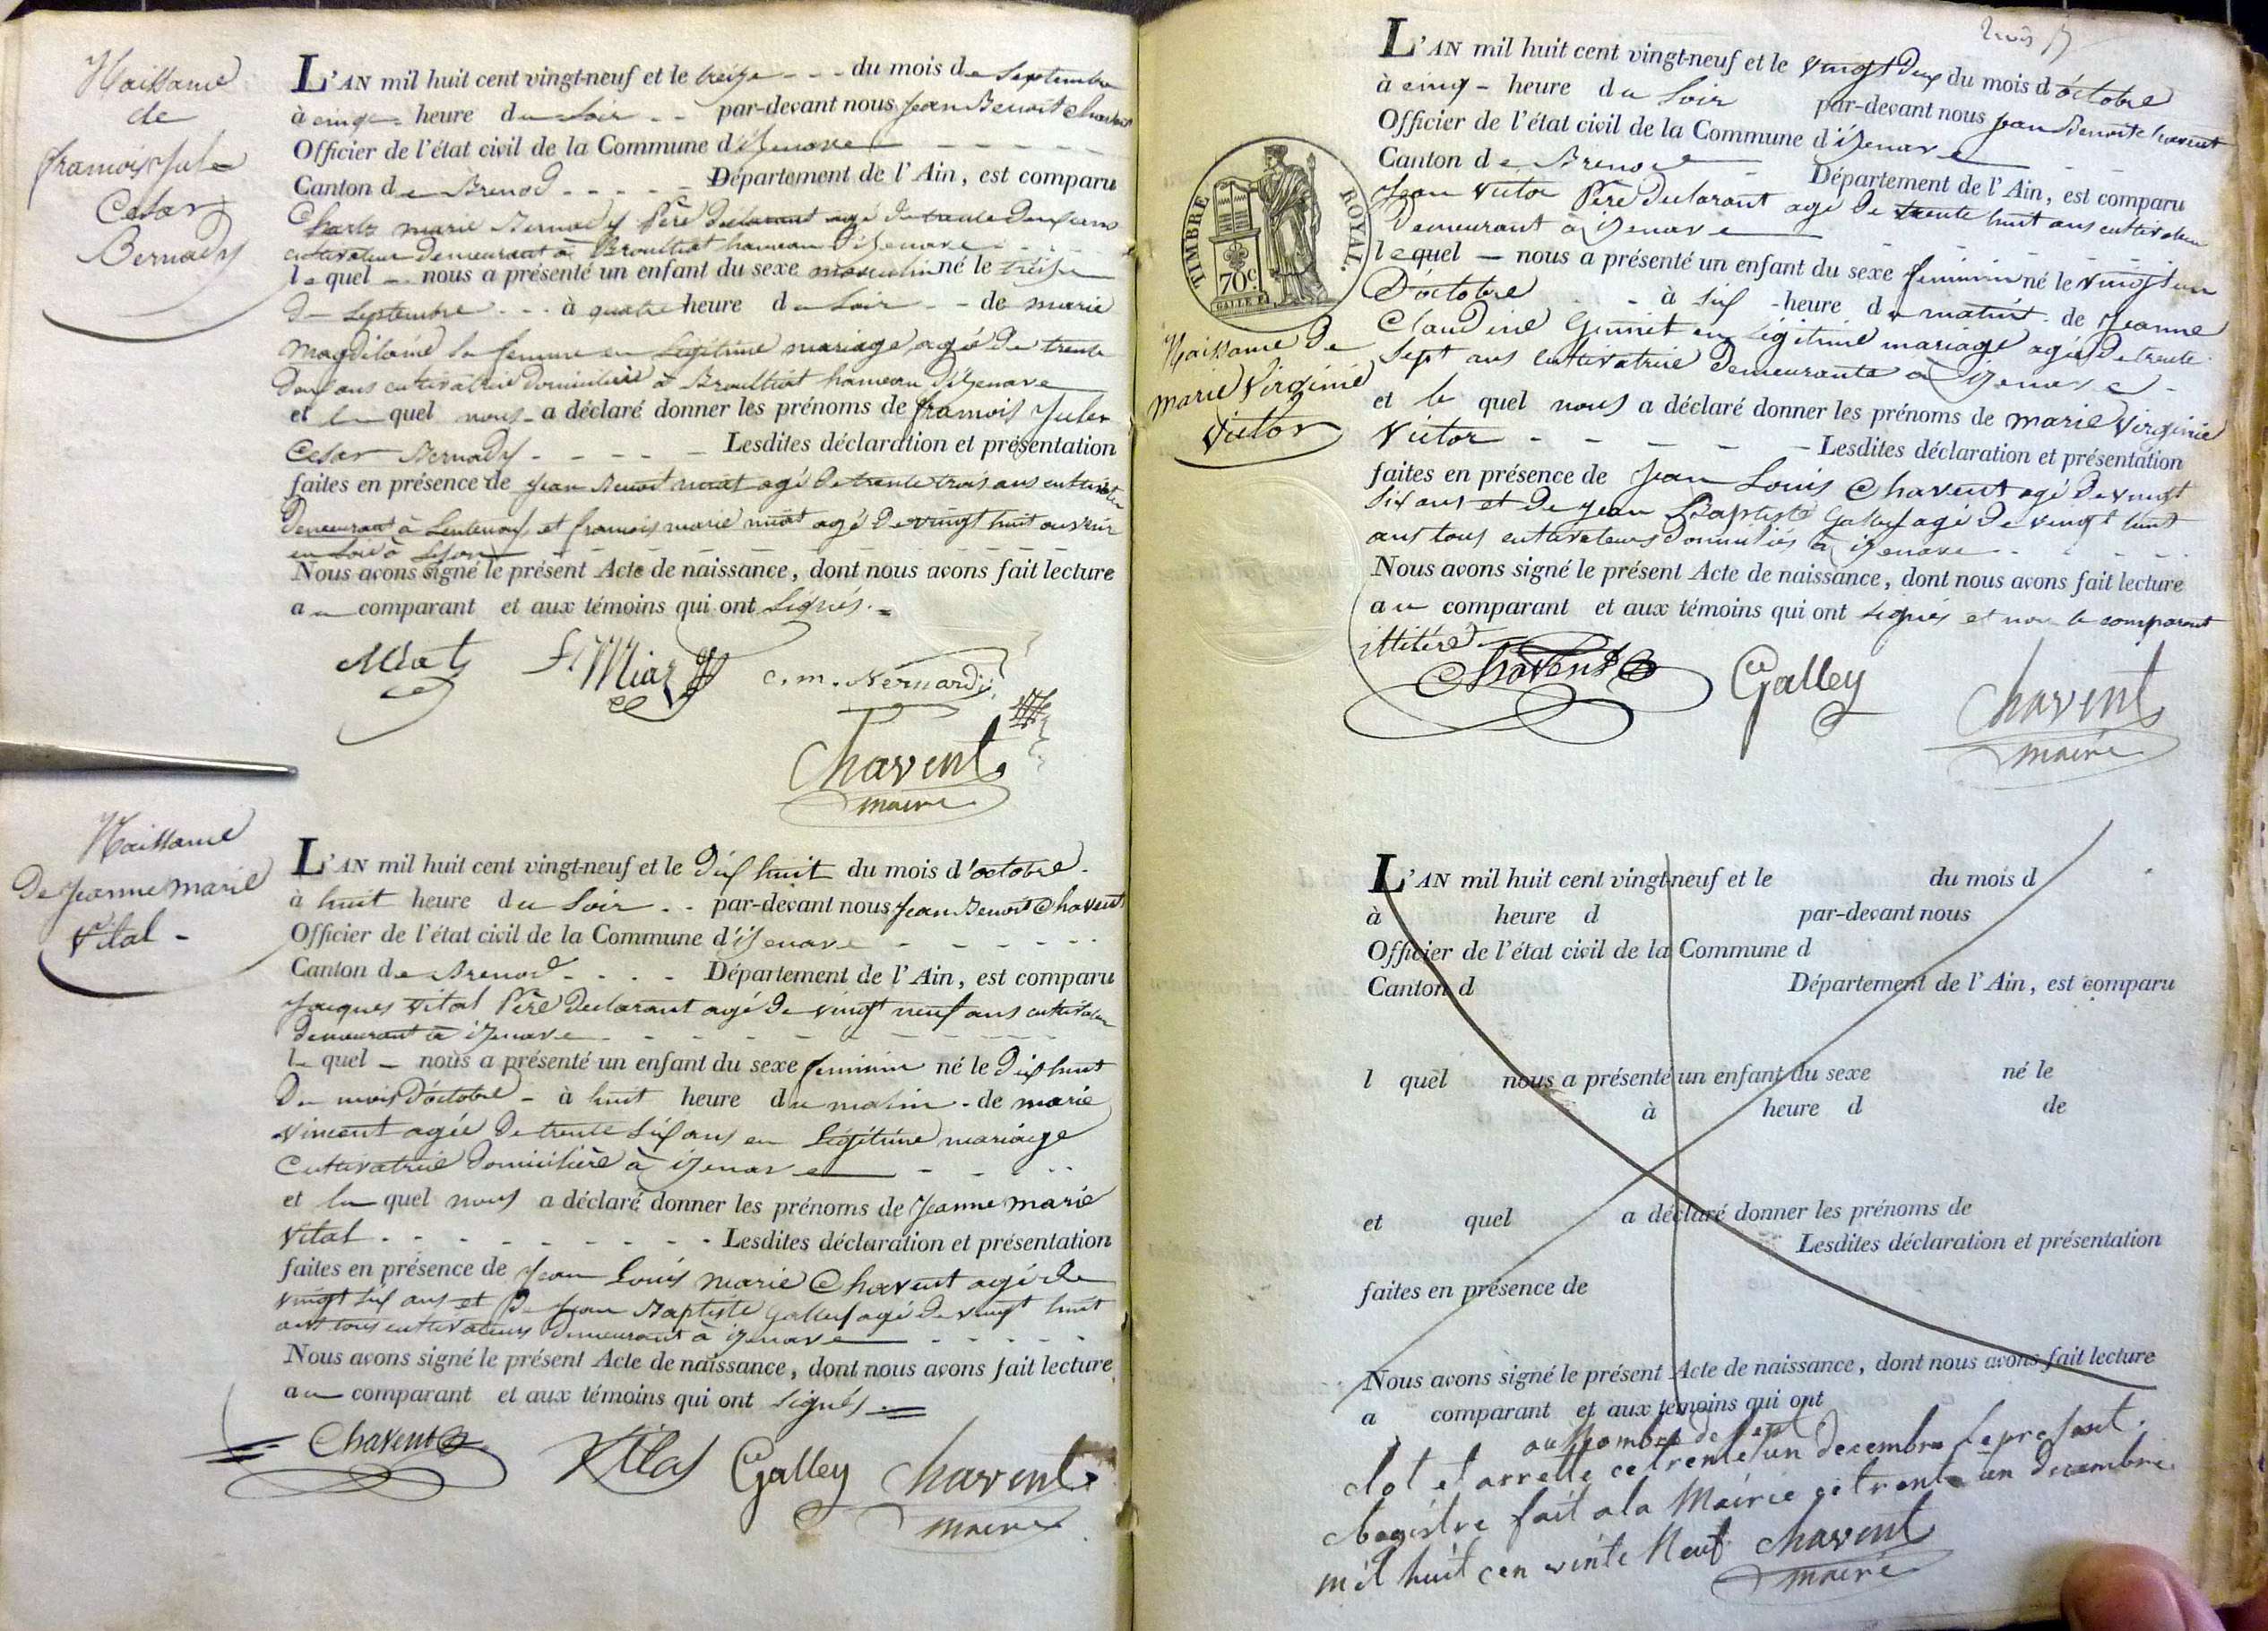 Naissance
de
francois Jules
Cesar
Bernady
L'AN mil huit cent vingt-neuf et le treize - - - du mois de Septembre
à cinq - heure du Soir - - par-devant nous Jean Benoit Chavent
Officier de l'état civil de la Commune d'izenave - - - - -
Canton de Brenod - - - - - Département de l'Ain, est comparu
Charles marie Bernady Père déclarant agé de trente deux ans
cultivateur demeurant à hameau d'izenave - - - -
lequel - - nous a présenté un enfant du sexe masculin né le treize
de Septembre - - - à quatre heure du Soir - - de marie
magdelaine sa femme en Legitime mariage, agée de trente
deux ans cultivatrice domiciliée à hameau d'izenave
et le quel nous - a déclaré donner les prénoms de francois Jules
Cesar Bernady - - - - - Lesdites déclaration et présentation
faites en présence de Jean Benoit miat agé de trente trois ans cultivateur
demeurant à Lentenay et francois marie miat agé de vingt huit ans
en Soie à Lyon - - - -
Nous avons signé le présent Acte de naissance, dont nous avons fait lecture
au comparant et aux témoins qui ont Signés. =
Miat f. Miaz c. m. Bernardy
Chavent
maire
Naissance
de Jeanne marie
Vital -
L'AN mil huit cent vingt-neuf et le dix huit du mois d'octobre -
à huit heure du Soir - - par-devant nous Jean Benoit Chavent
Officier de l'état civil de la Commune d'izenave - - - - - -
Canton de Brenod - - - - Département de l'Ain, est comparu
Jacques Vital Père déclarant agé de vingt neuf ans cultivateur
demeurant à izenave - - - - - -
le quel - nous a présenté un enfant du sexe feminin né le dix huit
du mois d'octobre - à huit heure du matin - de marie
Vincent agée de trente six ans en Légitime mariage
Cultivatrice domicilière à izenave - - - -
et le quel nous a déclaré donner les prénoms de Jeanne marie
Vital - - - - - - - - - Lesdites déclaration et présentation
faites en présence de Jean Louis marie Chavent agé de
vingt six ans et de Jean Baptiste Galley agé de vingt huit
ans tous cultivateurs demeurant à izenave - - - - -
Nous avons signé le présent Acte de naissance, dont nous avons fait lecture
au comparant et aux témoins qui ont signés =
Chavent Vital Galley Chavent
maire
L'AN mil huit cent vingt-neuf et le vingt deux du mois d'octobre
à cinq - heure du Soir par-devant nous Jean Benoit Chavent
Officier de l'état civil de la Commune d'izenave
Canton de Brenod - Département de l'Ain, est comparu
Jean Victor Père declarant agé de trente huit ans cultivateur
demeurant à izenave
lequel - nous a présenté un enfant du sexe feminin né le vingt un
D'octobre - - à six - heure du matin - de Jeanne
Claudine Guinet en Légitime mariage agée de trente
Sept ans Cultivatrice demeurante à izenave -
et le quel nous a déclaré donner les prénoms de marie Virginie
Victor - - - - - Lesdites déclaration et présentation
faites en présence de Jean Louis Chavent agé de vingt
six ans et de Jean Baptiste Galley agé de vingt huit
ans tous cultivateurs domiciliés à izenave - - - -
Nous avons signé le présent Acte de naissance, dont nous avons fait lecture
au comparant et aux témoins qui ont signés et non le comparant
illitéré
Chavent Galley Chavent
maire
TIMBRE ROYAL.
70c.
GALLE F.
Naissance de
marie Virginie
Victor
L'AN mil huit cent vingt-neuf et le du mois d
à heure d par-devant nous
Officier de l'état civil de la Commune d
Canton d Département de l'Ain, est comparu
l quel nous a présenté un enfant du sexe né le
à heure d de
et quel a déclaré donner les prénoms de
Lesdites déclaration et présentation
faites en présence de
Nous avons signé le présent Acte de naissance, dont nous avons fait lecture
a comparant et aux témoins qui ont
au Nombre de Sept
clot et arrette ce trente un decembre Le present
Regístre fait a la Mairie ce trente un decembre
mil huit cen vinte Neuf Chavent
maire